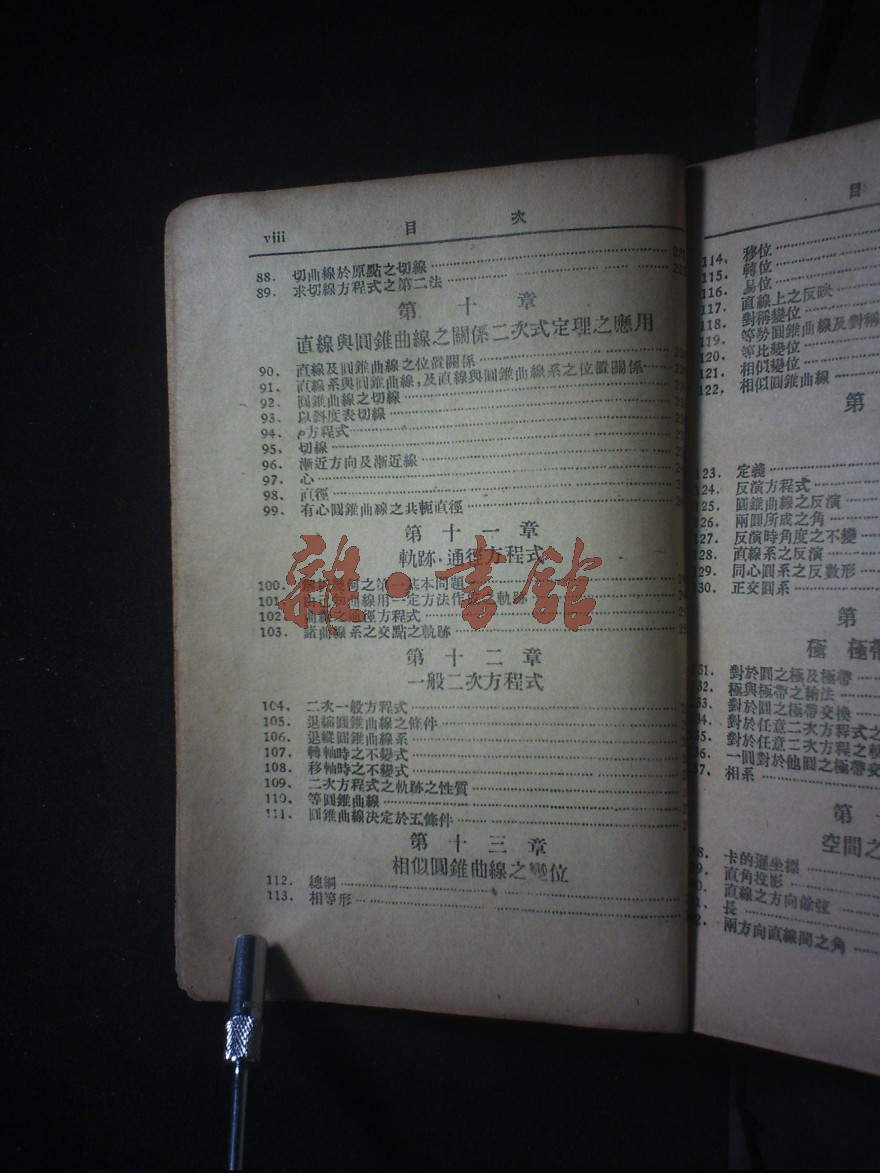 viii 目 次
88. 切曲線於原點之切線
89. 求切線方程式之第二法
第 十 章
直線與圓錐曲線之關係二次式定理之應用
90. 直線及圓錐曲線之位置關係
91. 直線系與圓錐曲線,及直線與圓錐曲線系之位置關係
92. 圓錐曲線之切線
93. 以斜度表切線
94. ρ方程式
95. 切線
96. 漸近方向及漸近線
97. 心
98. 直徑
99. 有心圓錐曲線之共軛直徑
第 十 一 章
軌跡·通徑方程式
100. 何之第一基本問題
101. 由已知曲線用一定方法作 之軌跡
102. 曲線之通徑方程式
103. 諸曲線系之交點之軌跡
第 十 二 章
一般二次方程式
104. 二次一般方程式
105. 退縮圓錐曲線之條件
106. 退縱圓錐曲線系
107. 轉軸時之不變式
108. 移軸時之不變式
109. 二次方程式之軌跡之性質
110. 等圓錐曲線
111. 圓錐曲線決定於五條件
第 十 三 章
相似圓錐曲線之變位
112. 總綱
113. 相等形
雜·書館
目
114. 移位
115. 轉位
116. 易位
117. 直線上之反映
118. 對稱變位
119. 等勢圓錐曲線及對稱
120. 等比變位
121. 相似變位
122. 相似圓錐曲線
第
123. 定義
124. 反演方程式
125. 圓錐曲線之反演
126. 兩圓所成之角
127. 反演時角度之不變
128. 直線系之反演
129. 同心圓系之反數形
130. 正交圓系
第
極 極帶
31. 對於圓之極及極帶
32. 極與極帶之繪法
33. 對於圓之極帶交換
34. 對於任意二次方程式之
35. 對於任意二次方程之軌
36. 一圓對於他圓之極帶交
37. 相系
第
空間之
38. 卡的遜坐標
39. 直角投影
40. 直線之方向餘弦
41. 長
42. 兩方向直線間之角